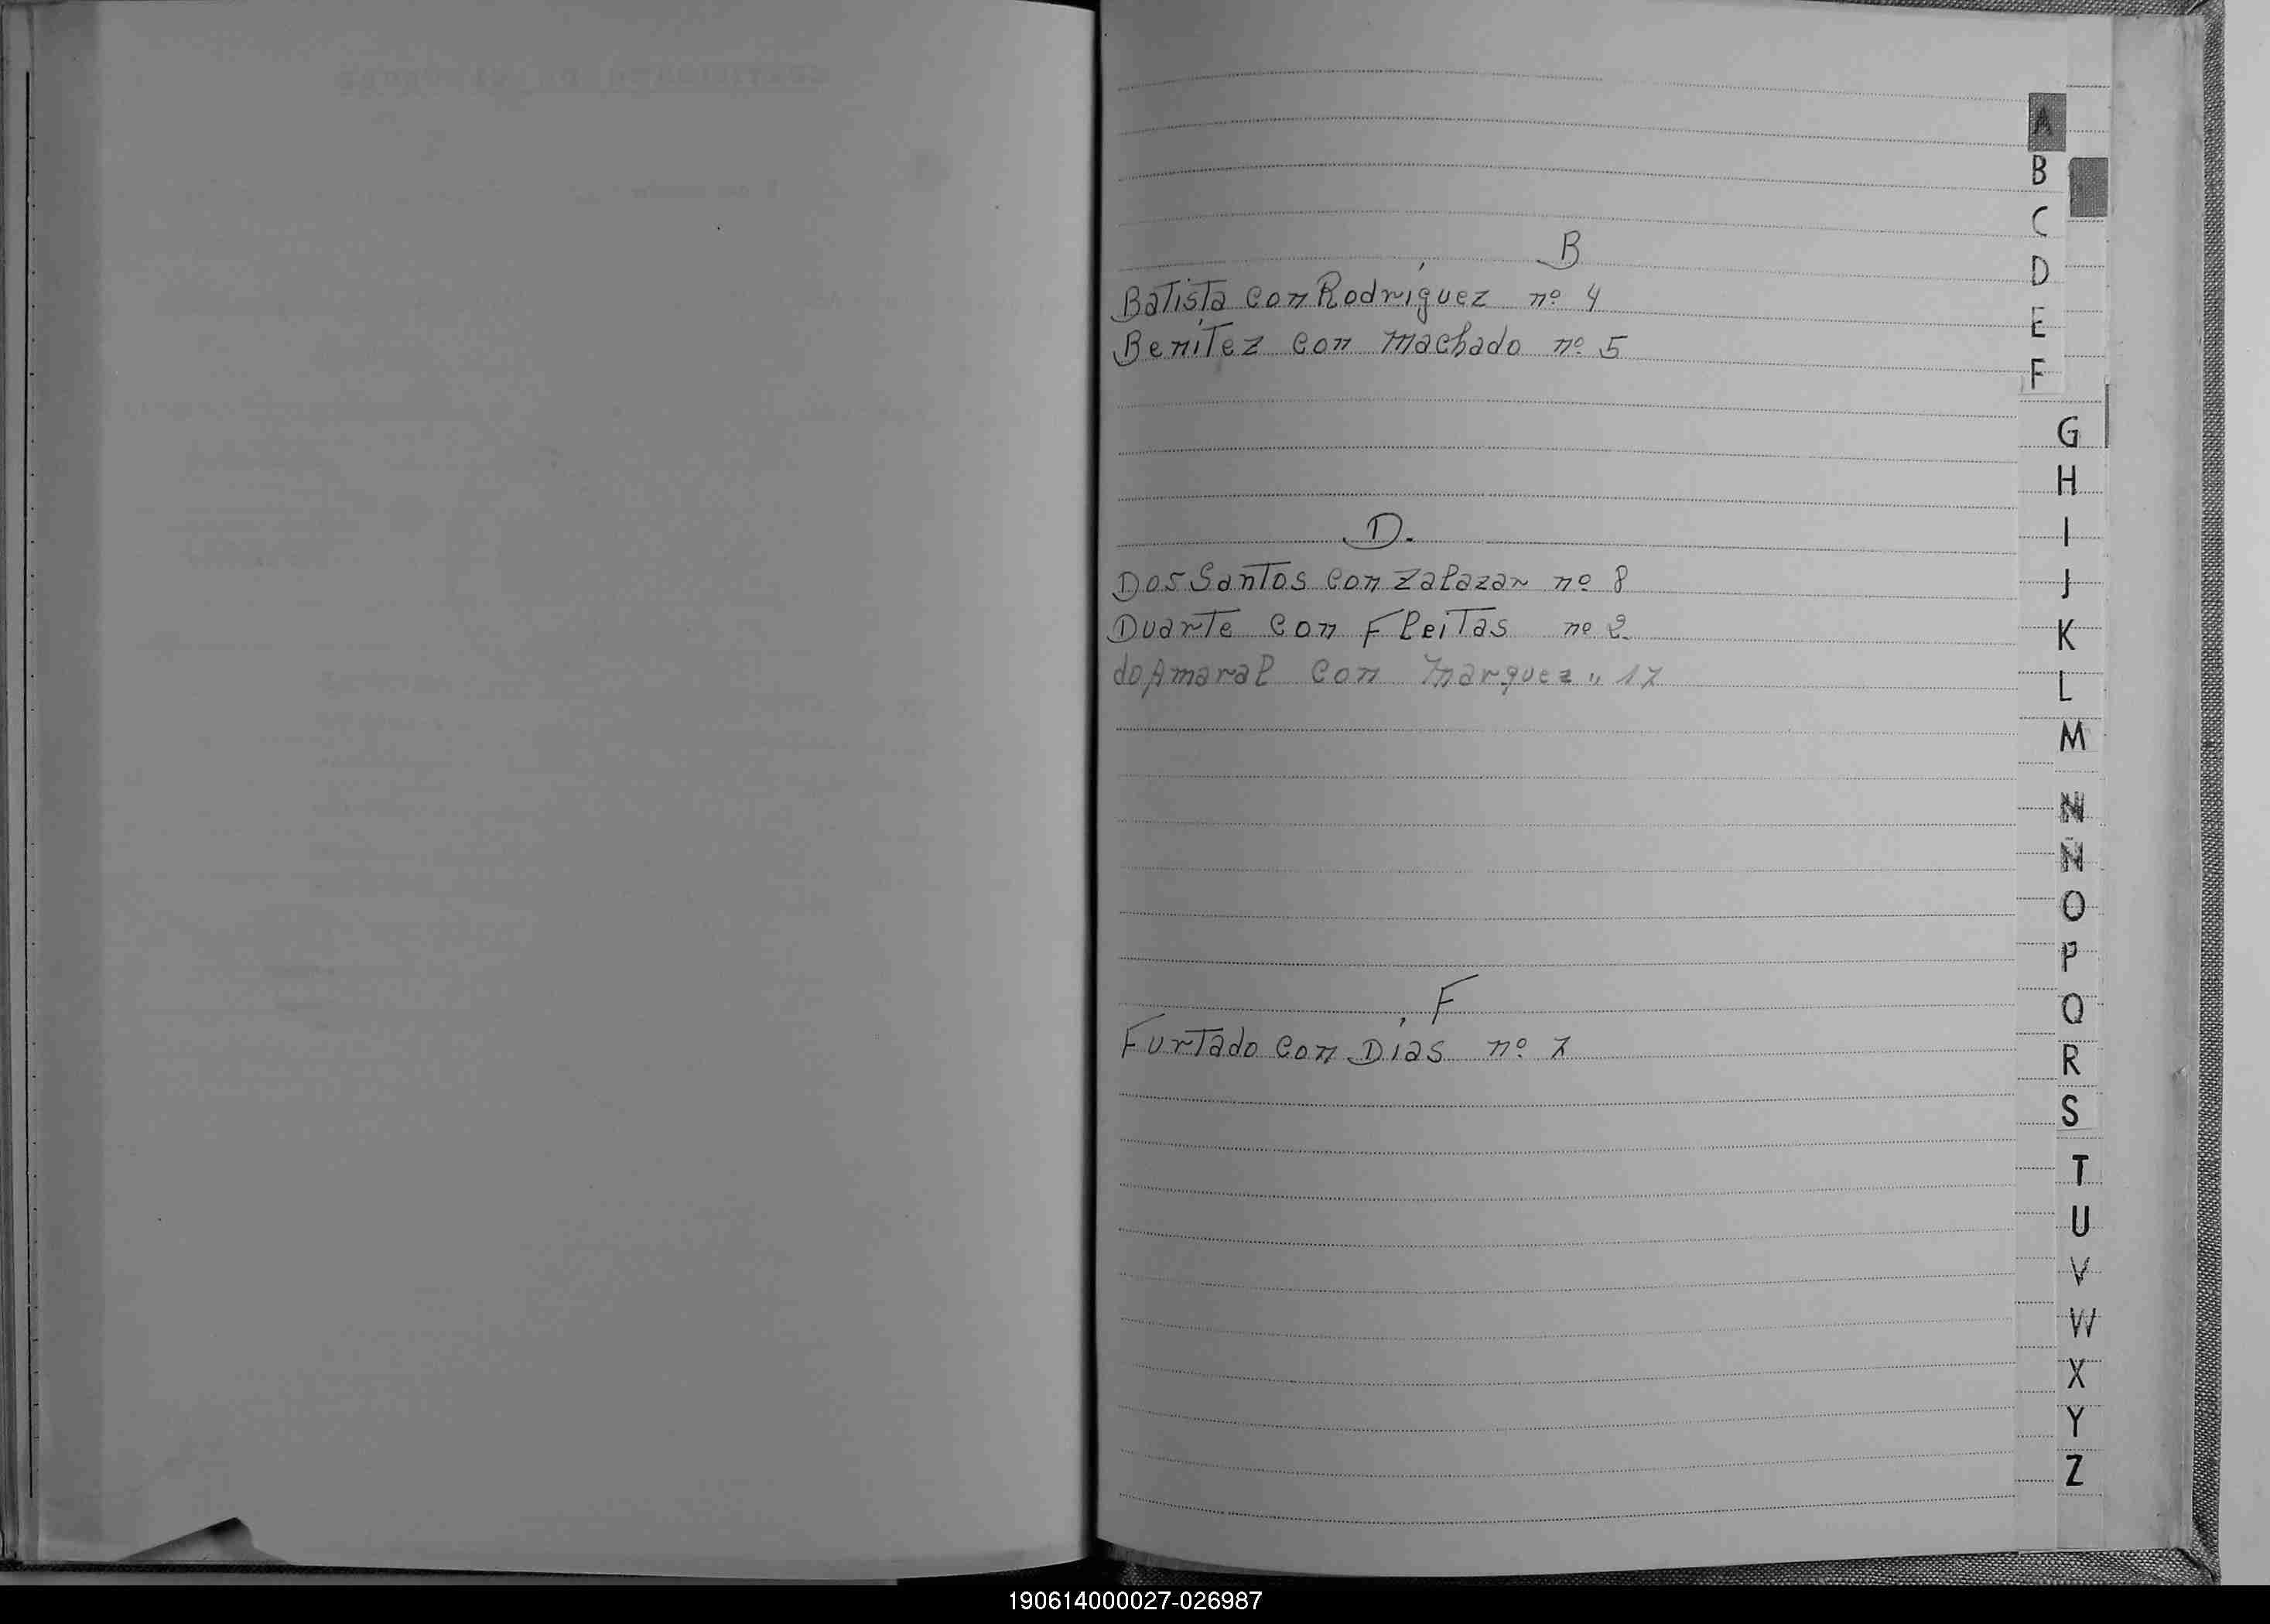 B
Batista con Rodríguez nº 4
Benítez con Machado nº 5
D.
Dos Santos con Zalazar nº 8
Duarte con Fleitas nº 2
do Amaral con Marquez " 17
F
Furtado con Días nº 7
A
B
C
D
E
F
G
H
I
J
K
L
M
N
Ñ
O
P
Q
R
S
T
U
V
W
X
Y
Z
190614000027-026987